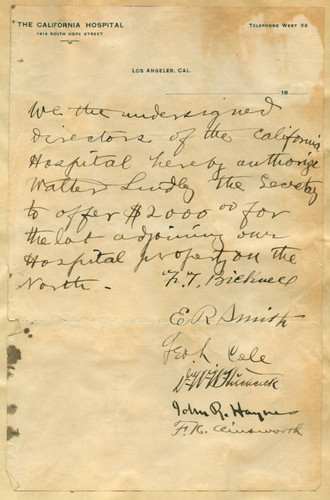 THE CALIFORNIA HOSPITAL
1414 SOUTH HOPE STREET
TELEPHONE WEST 92
LOS ANGELES, CAL.
18
We the undersigned
Directors of the California
Hospital hereby authorize
Walter Lindly the Secrety
to offer $2000 00 for
the lot adjoining our
Hospital property on the
North -
F. T. Bicknell
E R Smith
Geo L Cole
John R. Haynes
F. K. Ainsworth